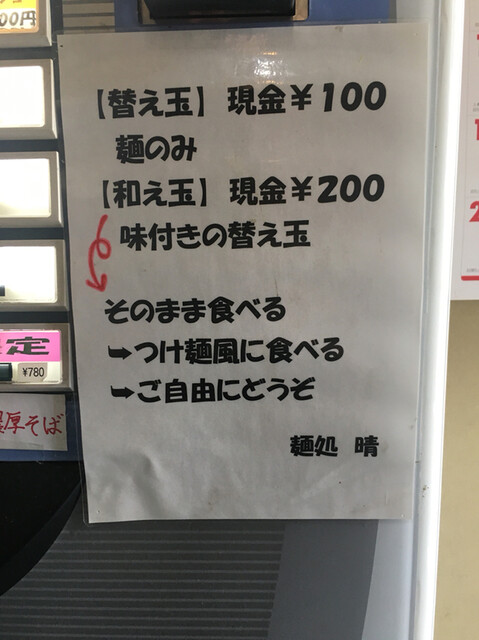 00円
【替え玉】 現金￥100
麺のみ
【和え玉】 現金￥200
味付きの替え玉
そのまま食べる
➥つけ麺風に食べる
➥ご自由にどうぞ
麺処 晴
定
¥780
厚そば